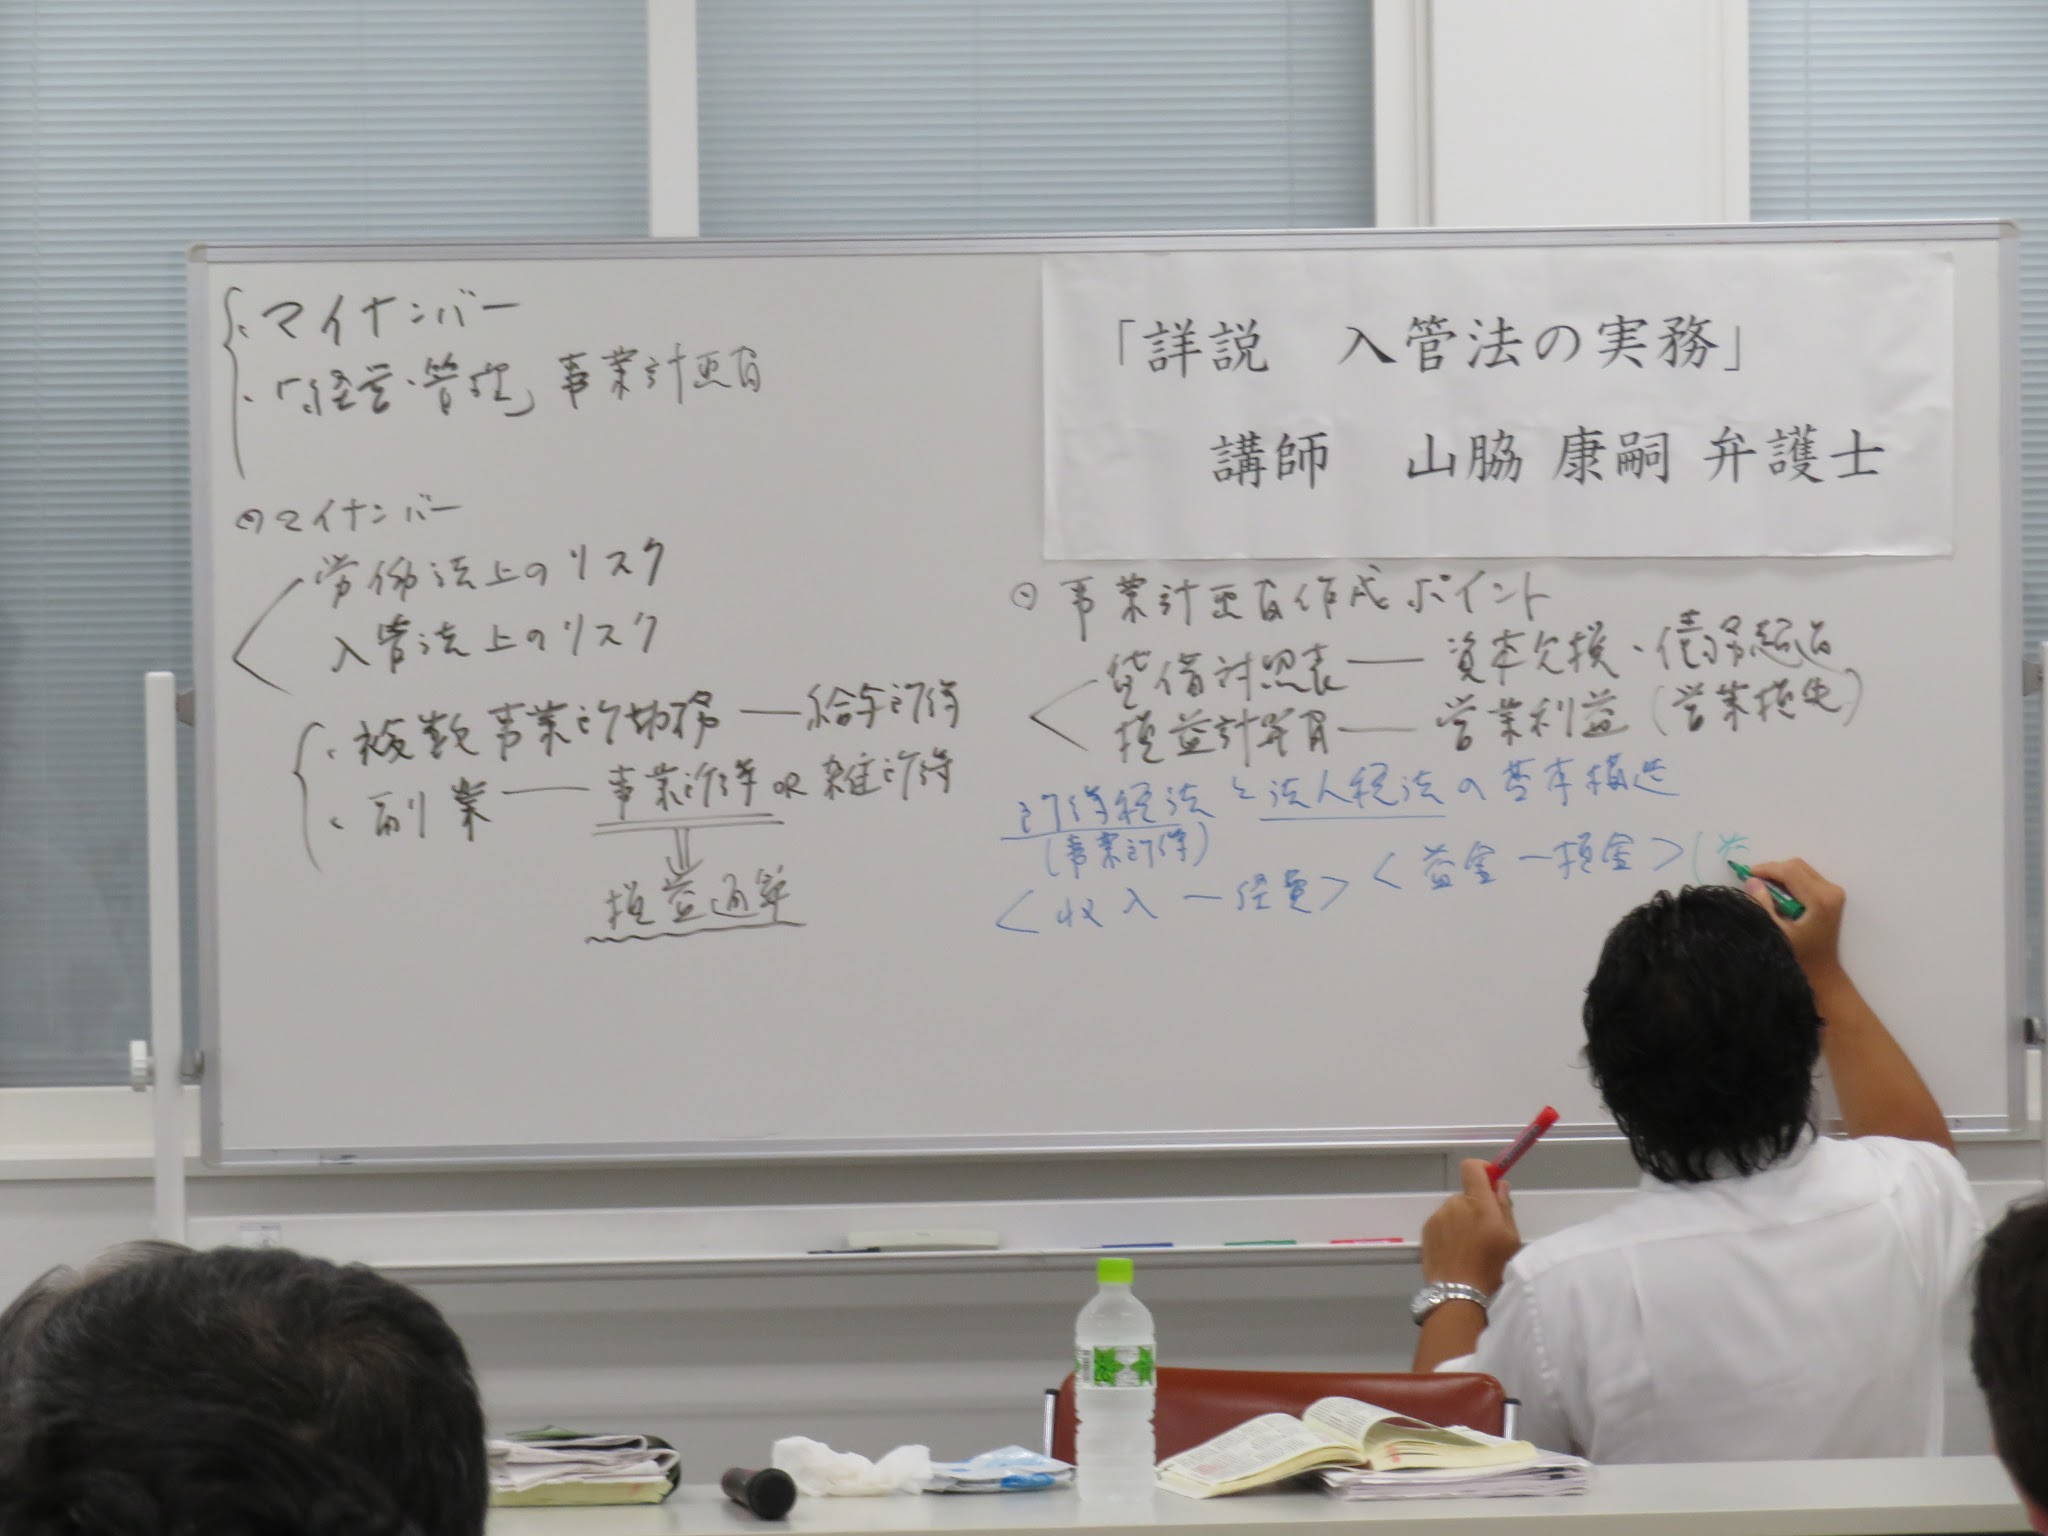 ・マイナンバー
・「経営・管理」事業計画書
◎マイナンバー
労働法上のリスク
入管法上のリスク
・複数事業所勤務 ― 給与所得
・副業 ― 事業所得 or 雑所得
損益通算
「詳説　入管法の実務」
講師　山脇 康嗣 弁護士
◎事業計画書作成ポイント
貸借対照表 ― 資本欠損・債務超過
損益計算書 ― 営業利益（営業損失）
所得税法と法人税法の基本構造
（事業所得）
＜収入－経費＞ ＜益金－損金＞（